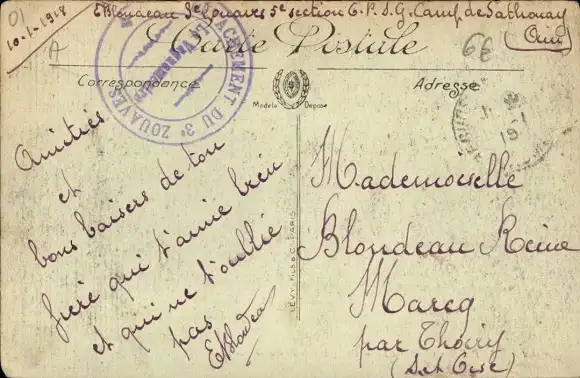 01
10-1-1918
EBlondeau 3e Zouaves 5e section C.P.S.G. Camp de Sathonay
(Ain)
6E
A
Carte Postale
Correspondance
Adresse
Modèle Déposé
DÉPLACEMENT DU 3e ZOUAVES
Le Vaguemestre
Amitiés
et
bons baisers de ton
frère qui t'aime bien
et qui ne t'oublie
pas
EBlondeau
LÉVY FILS & Cie PARIS
Mademoiselle
Blondeau Reine
Marcq
par Thoiry
(S. et Oise)